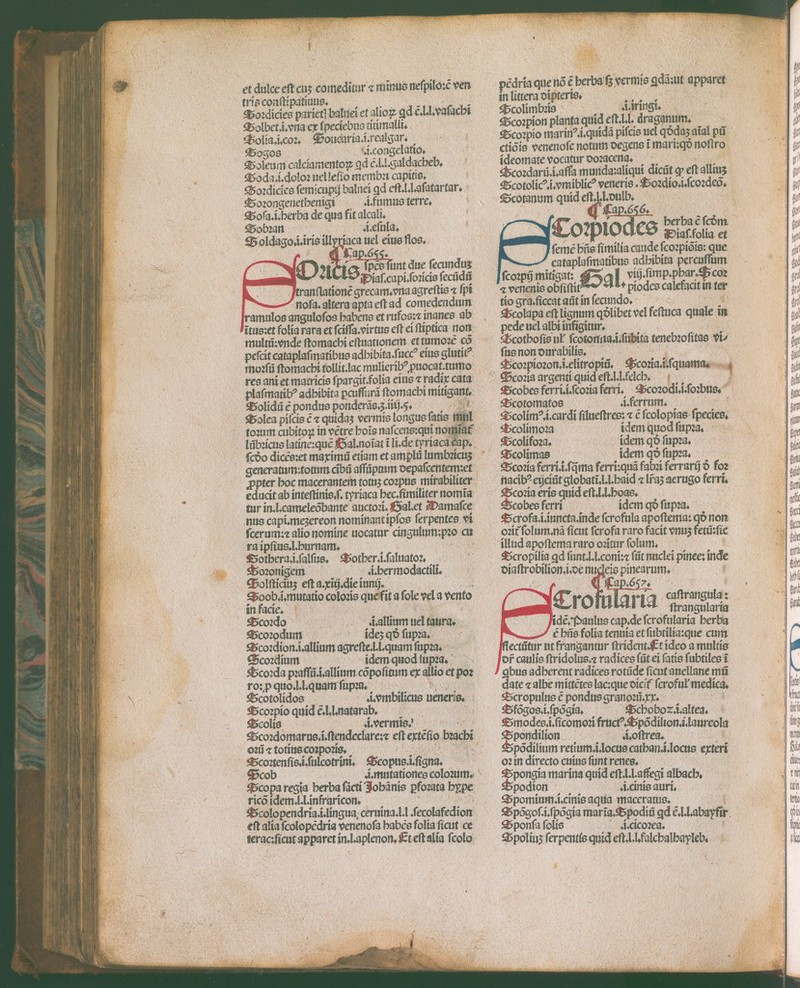 et dulce est cuȝ comeditur ⁊ minus nespilo:ē ven
tris constipatiuus.
Sordicies parietȷ balnei et alioꝝ qd ē.l.l.vasachi
Solbet.i.vna ex speciebus titimalli.
Solia.i.cor. Soucaria.i.realgar.
Sogos .i.congelatio.
Soleum calciamentoꝝ qd ē.l.l.galdacheb.
Soda.i.dolor uel lesio membri capitis.
Sordicies semicupij balnei qd est.l.l.asatartar.
Sorongenethenigi .i.fumus terre.
Sosa.i.herba de qua fit alcali.
Sobran .i.esula.
Soldago.i.iris illyriaca uel eius flos.
¶ Cap.655.
SOricis spēs sunt due secundus
Dias.capi.soricis secūdū
translationē grecam.vna agrestis ⁊ spi
nosa. altera apta est ad comedendum
ramulos angulosos habens et rufos:⁊ inanes ab
ītus:et folia rara et scissa.virtus est ei stiptica non
multū:vnde stomachi estuationem et tumorē cō
pescit cataplasmatibus adhibita.succꝰ eius glutitꝰ
morsū stomachi tollit.lac mulieribꝰ ꝓuocat.tumo
res ani et matricis spargit.folia eius ⁊ radix cata
plasmatibꝰ adhibita pcussurā stomachi mitigant.
Solidū ē pondus ponderās.ʒ.iiij.s.
Solea piscis ē ⁊ quidaȝ vermis longus satis mul
torum cubitoꝝ in vētre hoīs nascens:qui nomīat
lūbricus latine:quē Gal.noīat ī li.de tyriaca cap.
scdo dicēs:et maximū etiam et amplū lumbricuȝ
generatum:totum cibū assūptum depascentem:et
ꝓpter hoc macerantem totuȝ corpus mirabiliter
educit ab intestinis.s. tyriaca hec.similiter nomīa
tur in.l.cameleōbante auctori. Gal.et Damasce
nus capi.mezereon nominant ipsos serpentes vi
scerum:⁊ alio nomine uocatur cingulum:pro cu
ra ipsius.l.burnam.
Sothera.i.salsus. Sother.i.saluator.
Soronigem .i.hermodactili.
Solsticiuȝ est a.xiij.die iunij.
Soob.i.mutatio coloris que fit a sole vel a vento
in facie.
Scordo .i.allium uel taura.
Scorodum ideȝ qd̄ supra.
Scordion.i.allium agreste.l.l.quam supra.
Scordium idem quod supra.
Scorda prassū.i.allium cōpositum ex allio et por
ro:ꝓ quo.l.l.quam supra.
Scotolidos .i.vmbilicus ueneris.
Scorpio quid ē.l.l.natarab.
Scolis .i.vermis.
Scordomarus.i.stendeclare:⁊ est extēsio brachi
orū ⁊ totius corporis.
Scortensis.i.sulcotrini. Scopus.i.signa.
Scob .i.mutationes colorum.
Scopa regia herba sācti Johānis pforata hype
ricō idem.l.l.infraricon.
Scolopendria.i.lingua ceruina.l.l .secolafedion
est alia scolopēdria venenosa habēs folia sicut ce
terac:sicut apparet in.l.aplenon. Et est alia scolo
pēdria que nō ē herba sȝ vermis qdā:ut apparet
in littera dipteris.
Scolimbris .i.iringi.
Scorpion planta quid est.l.l. draganum.
Scorpio marinꝰ.i.quidā piscis uel qdaȝ aīal pū
ctiōis venenose notum degens ī mari:qd̄ nostro
ideomate vocatur doracena.
Scordarū.i.assa munda:aliqui dicūt ꝙ est alliuȝ
Scotolicꝰ.i.vmblicꝰ veneris . Sordio.i.scordeō.
Scotanum quid est.l.l.dulb.
¶ Cap.656.
SCorpiodes herba ē scd̄m
Dias.folia et
semē hn̄s similia caude scorpiōis: que
cataplasmatibus adhibita percussum
scorpij mitigat: Gal. viij.simp.phar.Scor
⁊ venenis obsistit piodes calefacit in ter
tio gra.siccat aūt in secundo.
Scolapa est lignum qd̄libet vel festuca quale in
pede uel albi infigitur.
Scothosis ul' scotomia.i.subita tenebrositas vi-
sus non durabilis.
Scorpiozon.i.elitropiū. Scoria.i.squama.
Scoria argenti quid est.l.l.felch.
Scobes ferri.i.scoria ferri. Scorodi.i.sorbus.
Scotomatos .i.ferrum.
Scolimꝰ.i.cardi siluestres: ⁊ ē scolopias species.
Scolimora idem quod supra.
Scolifora. idem qd̄ supra.
Scolimas idem qd̄ supra.
Scoria ferri.i.sqma ferri:quā fabri ferrarij d̄ for
nacibꝰ eijciūt globati.l.l.haid ⁊ lr̄aȝ aerugo ferri.
Scoria eris quid est.l.l.hoas.
Scobes ferri idem qd̄ supra.
Scrofa.i.iuncta.inde scrofula apostema: qd̄ non
orit' solum.nā sicut scrofa raro facit vnuȝ fetū:sic
illud apostema raro oritur solum.
Scropilia qd sunt.l.l.coni:⁊ sūt nuclei pinee: inde
diastrobilion.i.de nucleis pinearum.
¶ Cap.657.
SCrofularia castrangula:
strangularia
idē. Paulus cap.de scrofularia herba
ē hn̄s folia tenuia et subtilia:que cum
flectūtur ut frangantur strident.Et ideo a multis
dr̄ caulis stridolus.⁊ radices sūt ei satis subtiles ī
qbus adherent radices rotūde sicut auellane mū
date ⁊ albe mittētes lac:que dicit' scroful' medica.
Scropulus ē pondus granorū.xx.
Sfōgos.i.spōgia. Schoboz.i.altea.
Smodes.i.sicomori fructꝰ.Spōdilion.i.laureola
Spondilion .i.ostrea.
Spōdilium retium.i.locus cathan.i.locus exteri
or in directo cuius sunt renes.
Spongia marina quid est.l.l.affegi albach.
Spodion .i.cinis auri.
Spomium.i.cinis aqua maceratus.
Spōgos.i.spōgia maria.Spodiū qd ē.l.l.abaysir
Sponsa solis .i.cicorea.
Spoliuȝ serpentis quid est.l.l.falchalhayleb.